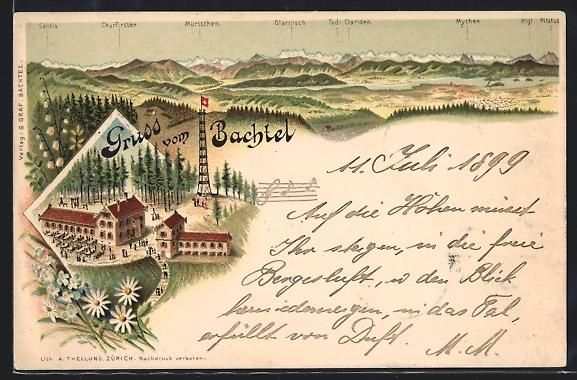 Säntis Churfirsten Mürtschen. Glärnisch Tödi Clariden. Mythen Rigi Pilatus
Verlag: G GRAF BACHTEL.
Gruss vom Bachtel
11. Juli 1899
Auf die Höhen müsst
Ihr steigen, in die freie
Bergesluft, den Blick
herniederneigen, in das Tal,
erfüllt von Duft.
M. M.
Lith. A. THELLUNG, ZÜRICH. Nachdruck verboten.